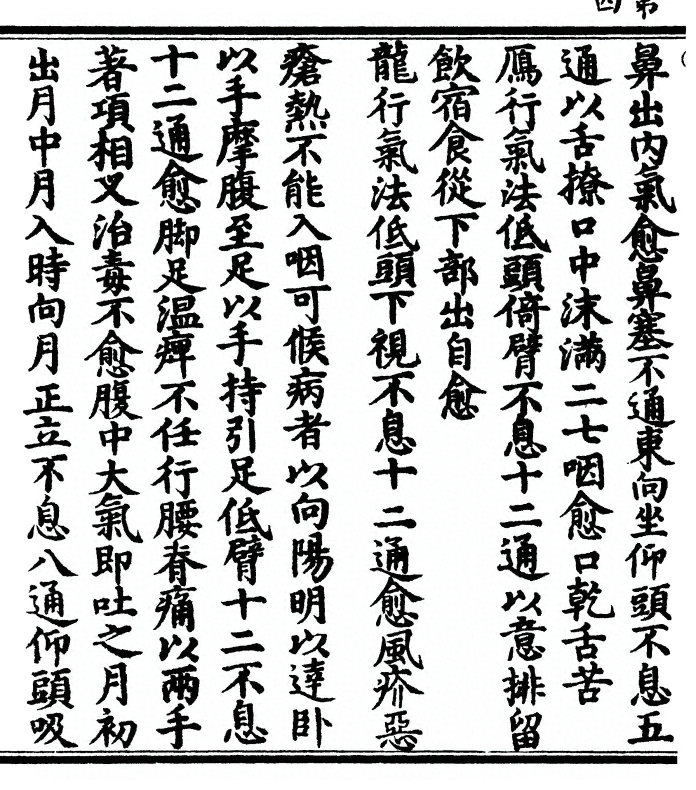 第四
鼻出內氣愈鼻塞不通東向坐仰頭不息五
通以舌撩口中沫滿二七咽愈口乾舌苦
鴈行氣法低頭倚臂不息十二通以意排留
飲宿食從下部出自愈
龍行氣法低頭下視不息十二通愈風疥惡
瘡熱不能入咽可候病者以向陽明以達卧
以手摩腹至足以手持引足低臂十二不息
十二通愈脚足溫痺不任行腰脊痛以兩手
著項相叉治毒不愈腹中大氣即吐之月初
出月中月入時向月正立不息八通仰頭吸